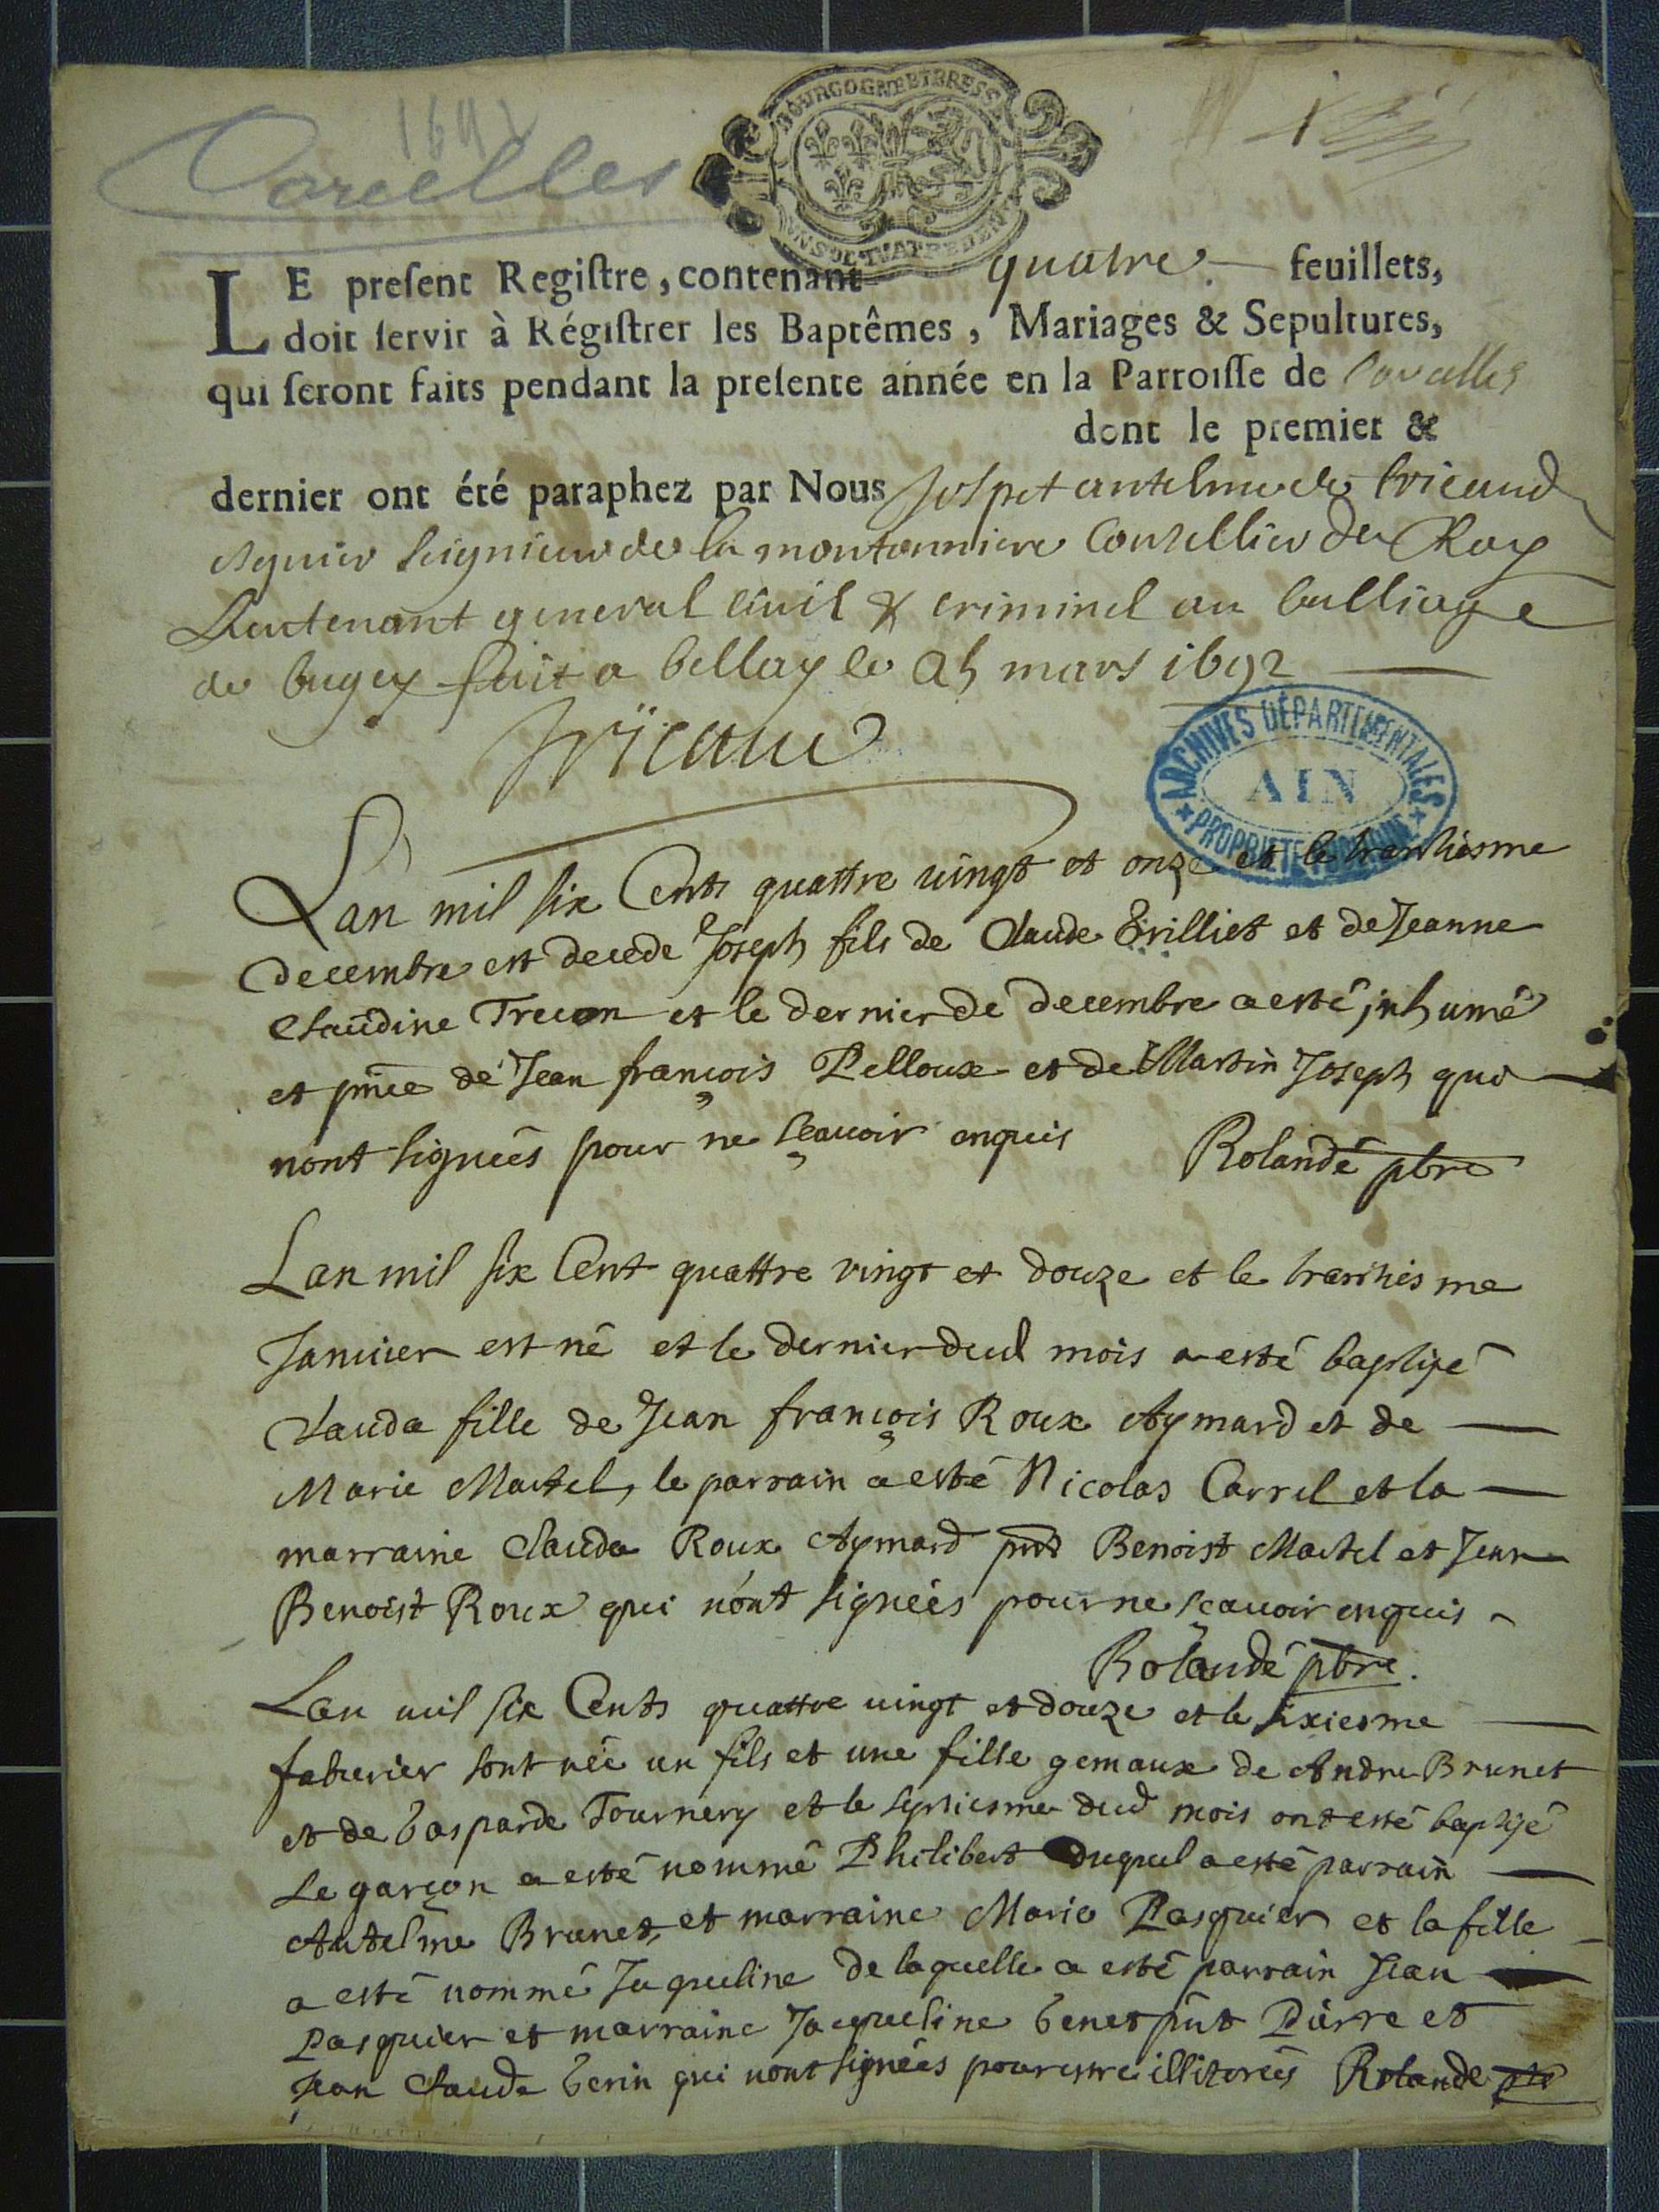 1692
Corcelles
BOURGOGNE ET BRESSE
UN SOL QUATRE DEN
LE preſent Regiſtre, contenant quatre feuillets,
doit ſervir à Régiſtrer les Baptêmes, Mariages & Sepultures,
qui ſeront faits pendant la preſente année en la Parroiſſe de Corcelles
dont le premier &
dernier ont été paraphez par Nous Jospet antelme de tricaud
esquier seigneur de la montonniere Conseillier du Roy
Lieutenant general civil & criminel au balliage
de bugey fait a bellay le mars 1692
Tricaud
ARCHIVES DÉPARTEMENTALES
AIN
PROPRIÉTÉ PUBLIQUE
Lan mil six Cents quattre vingt et onze et le trentiesme
decembre est decede Joseph fils de Claude Trilliet et de Jeanne
Claudine Trecon et le dernier de decembre a esté inhumé
et pnce de Jean françois Pelloux et de Martin Joseph qui
nont signées pour ne sçauoir enquis Rolandé pbre
Lan mil six Cent quattre vingt et douze et le trantiesme
Januier est né et le dernier dud mois a esté baptisé
Clauda fille de Jean françois Roux Aymard et de
Marie Martel, le parrain a esté Nicolas Carrel et la
marraine Clauda Roux Aymard pnt Benoist Martel et Jean
Benoist Roux qui nont signées pour ne sçauoir enquis
Rolandé pbre.
Lan mil six Cents quattre uingt et douze et le sixiesme
feburier sont née un fils et une fille gemaux de Andre Brunet
et de Gasparde Tournery et le septiesme dud mois ont esté baptisé
Le garçon a esté nommé Philibert duquel a esté parrain
Antelme Brunet, et marraine Marie Pasquier et la fille
a esté nommé Jaqueline de laquelle a esté parrain Jean
Pasquier et marraine Jacqueline Genet pnt Pierre et
Jean Claude Genin qui nont signées pour estre illiterées Rolande pbre